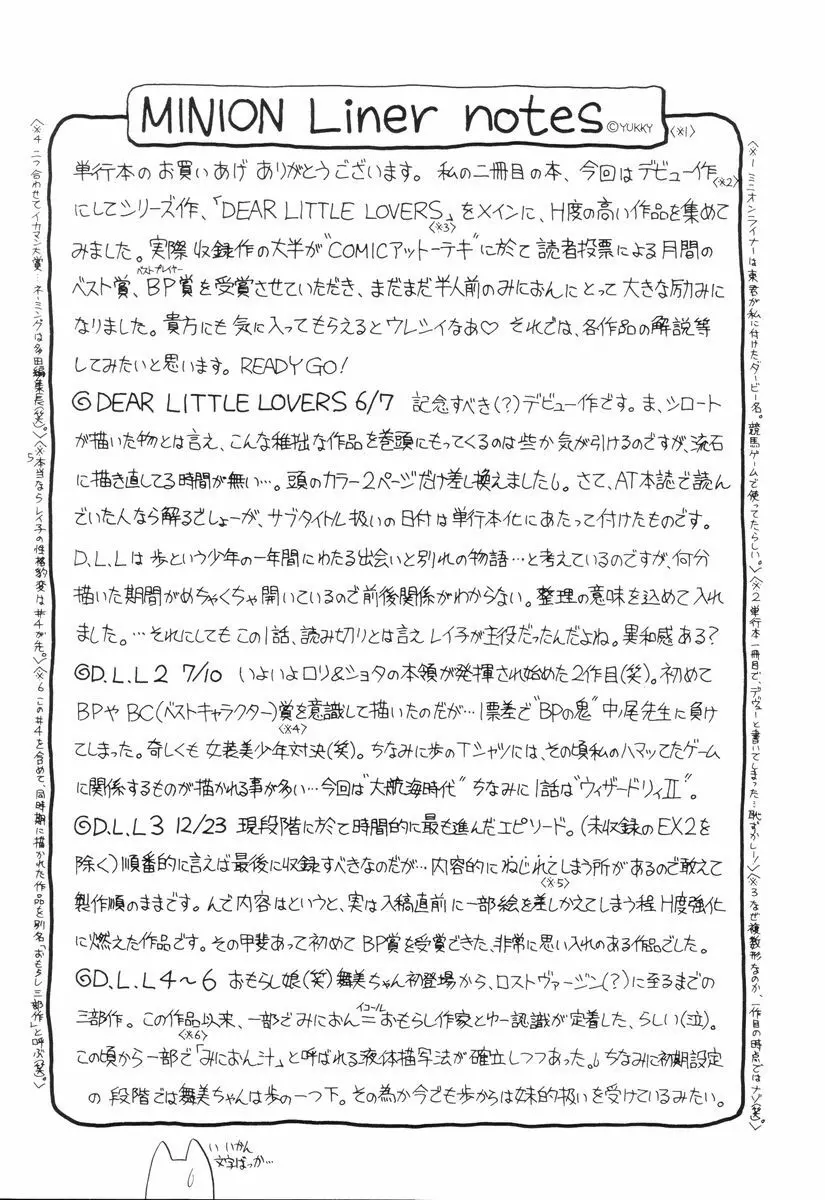 MINION Liner notes ©YUKKY 〈※1〉
単行本のお買いあげ ありがとうございます。私の二冊目の本、今回はデビュー作
〈※2〉
にしてシリーズ作、「DEAR LITTLE LOVERS」をメインに、H度の高い作品を集めて
〈※3〉
みました。実際 収録作の大半が"COMICアットーテキ"に於て読者投票による月間の
ベストプレイヤー
ベスト賞、BP賞を受賞させていただき、まだまだ半人前のみにおんにとって大きな励みに
なりました。貴方にも気に入ってもらえるとウレシイなあ♡ それでは、各作品の解説等
してみたいと思います。READY GO!
◎DEAR LITTLE LOVERS 6/7 記念すべき(?)デビュー作です。ま、シロート
が描いた物とは言え、こんな稚拙な作品を巻頭にもってくるのは些か気が引けるのですが、流石
に描き直してる時間が無い…。頭のカラー2ページだけ差し換えました。さて、AT本誌で読ん
でいた人なら解るでしょーが、サブタイトル扱いの日付は単行本化にあたって付けたものです。
D.L.Lは歩という少年の一年間にわたる出会いと別れの物語…と考えているのですが、何分
描いた期間がめちゃくちゃ開いているので前後関係がわからない。整理の意味を込めて入れ
ました。…それにしてもこの1話、読み切りとは言えレイ子が主役だったんだよね。異和感ある?
◎D.L.L2 7/10 いよいよロリ&ショタの本領が発揮され始めた2作目(笑)。初めて
BPやBC(ベストキャラクター)賞を意識して描いたのだが…1票差で"BPの鬼"中ノ尾先生に負け
〈※4〉
てしまった。奇しくも女装美少年対決(笑)。ちなみに歩のTシャツには、その頃私のハマッてたゲーム
に関係するものが描かれる事が多い…今回は"大航海時代"ちなみに1話は"ウィザードリィII"。
◎D.L.L3 12/23 現段階に於て時間的に最も進んだエピソード。(未収録のEX2を
除く)順番的に言えば最後に収録すべきなのだが…内容的にねじれてしまう所があるので敢えて
〈※5〉
製作順のままです。んで内容はというと、実は入稿直前に一部絵を差しかえてしまう程H度強化
に燃えた作品です。その甲斐あって初めてBP賞を受賞できた、非常に思い入れのある作品でした。
◎D.L.L4～6 おもらし娘(笑)舞美ちゃん初登場から、ロストヴァージン(?)に至るまでの
イコール
三部作。この作品以来、一部でみにおん=おもらし作家とゆー認識が定着した、らしい(泣)。
〈※6〉
この頃から一部で「みにおん汁」と呼ばれる液体描写法が確立しつつあった。ちなみに初期設定
の段階では舞美ちゃんは歩の一つ下。その為か今でも歩からは妹的扱いを受けているみたい。
〈※1 ミニオンライナーは東君が私に付けたダービー名。競馬ゲームで使ってたらしい。〉〈※2 単行本一冊目で、デヴューと書いてしまった…恥ずかしー!〉〈※3 なぜ複数形なのか、一作目の時点ではナゾ(笑)。〉
〈※4 二つ合わせてイカマン大賞…ネーミングは多田編集長(笑)。〉〈※5 本当ならレイ子の性格豹変は#4が先。〉〈※6 この#4を含めて、同時期に描かれた作品を別名「おもらし三部作」と呼ぶ(笑)。〉
いいかん
文字ばっか…